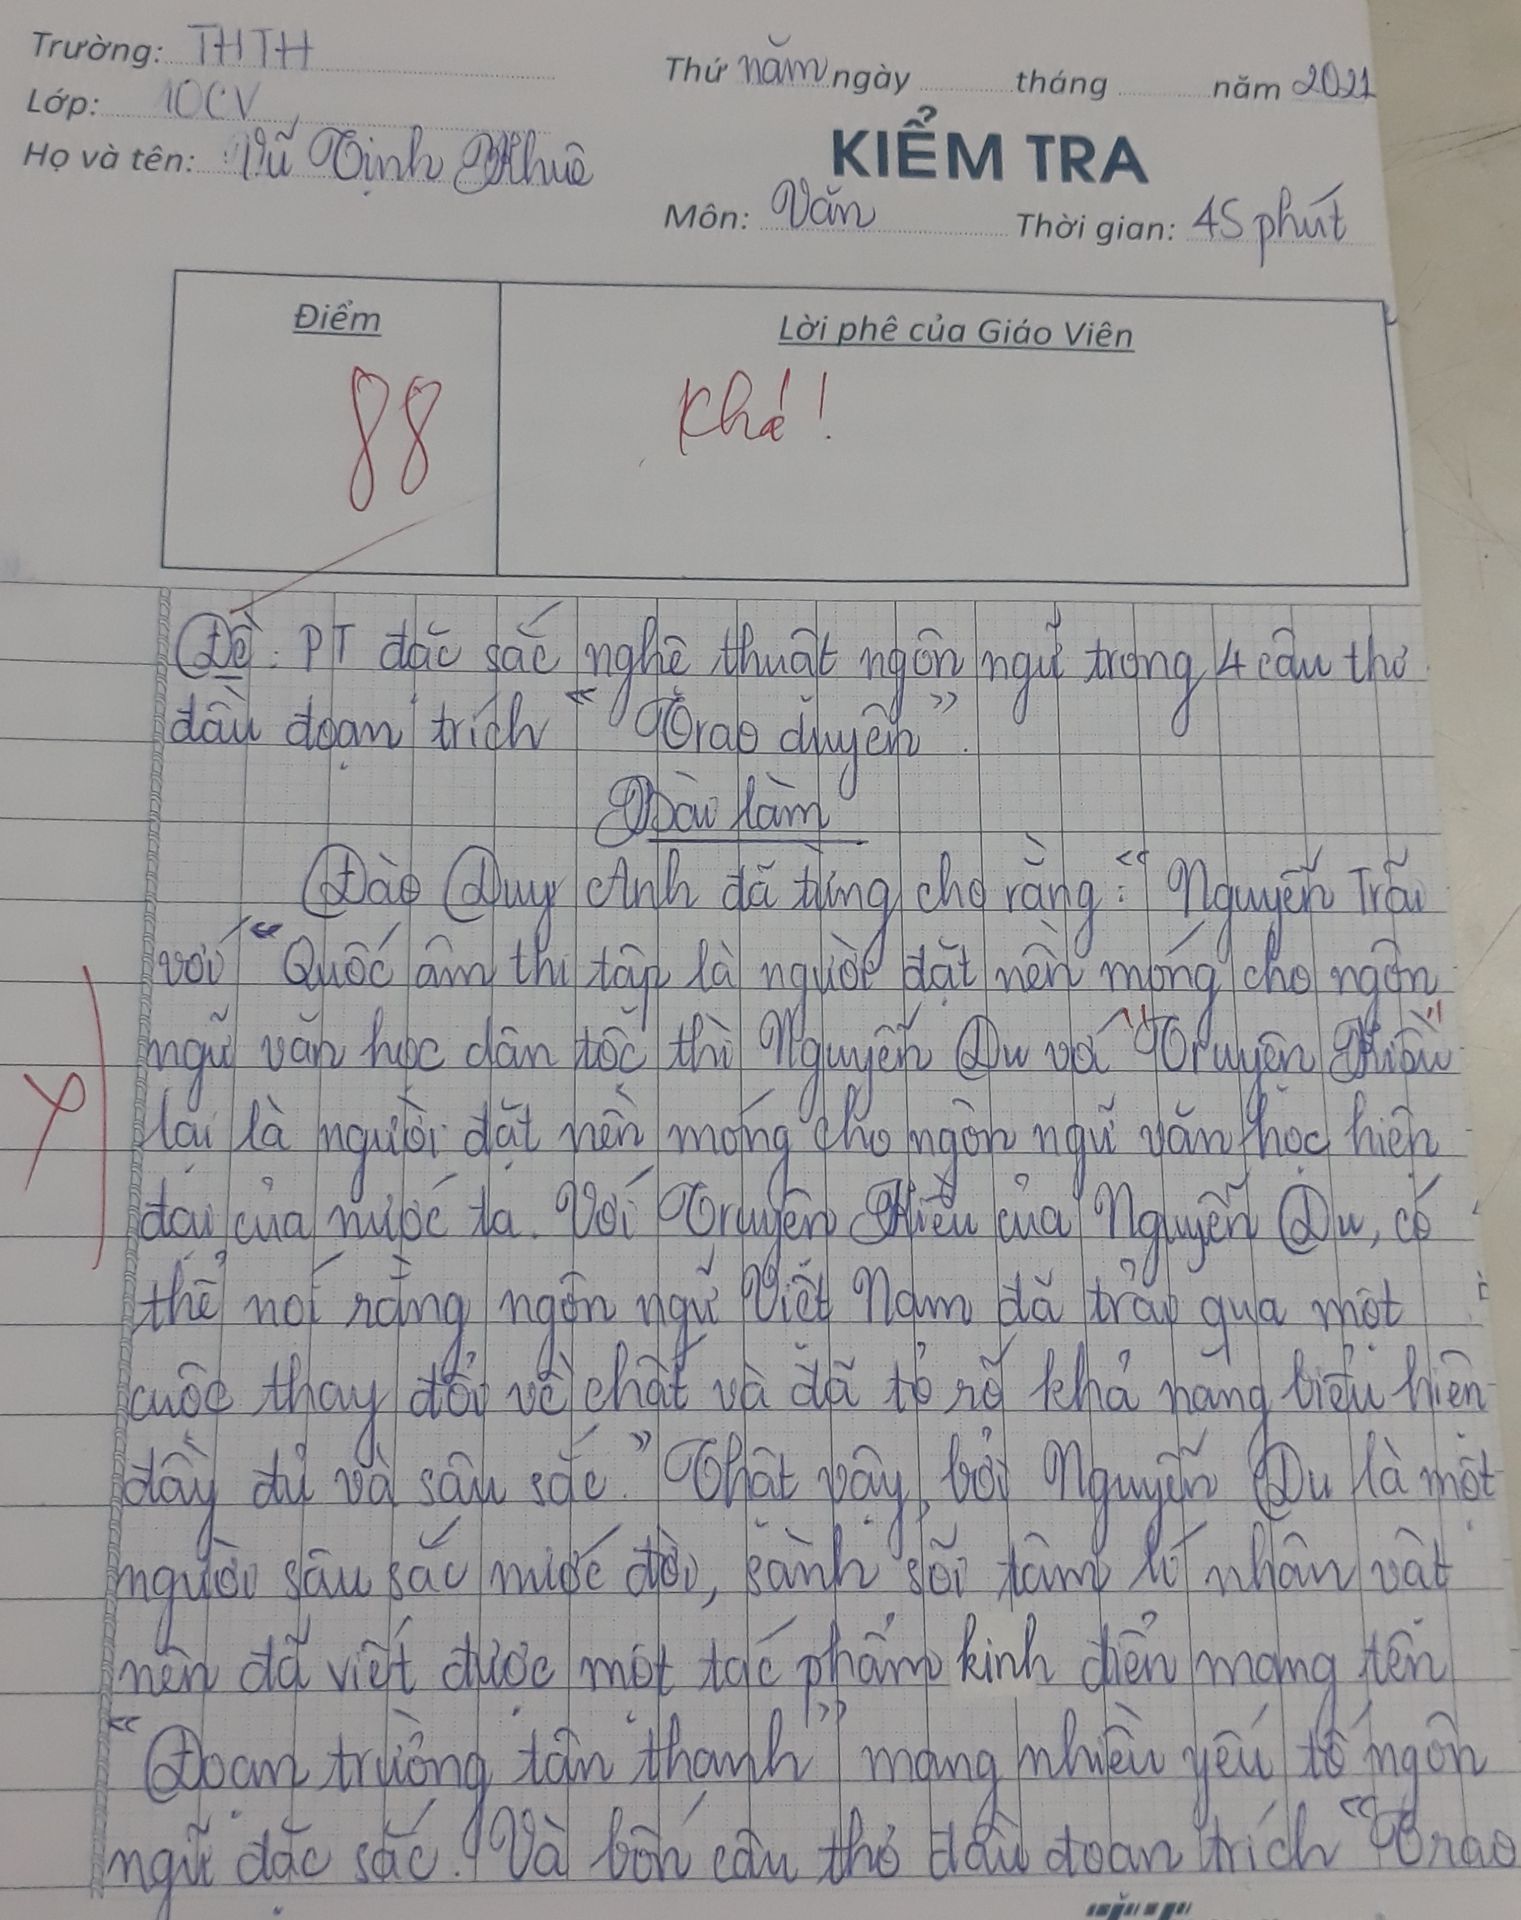 Trường: THTH
Thứ năm ngày tháng năm 2021
Lớp: 10CV
Họ và tên: Vũ Tịnh Khuê
KIỂM TRA
Môn: Văn Thời gian: 45 phút
Điểm
Lời phê của Giáo Viên
88
Khá!
Đề: PT đặc sắc nghệ thuật ngôn ngữ trong 4 câu thơ
đầu đoạn trích "Trao duyên".
Bài làm
Đào Duy Anh đã từng cho rằng: "Nguyễn Trãi
với "Quốc âm thi tập là người đặt nền móng cho ngôn
ngữ văn học dân tộc thì Nguyễn Du với "Truyện Kiều"
lại là người đặt nền móng cho ngôn ngữ văn học hiện
đại của nước ta. Với Truyện Kiều của Nguyễn Du, có
thể nói rằng ngôn ngữ Việt Nam đã trải qua một
cuộc thay đổi về chất và đã tỏ rõ khả năng biểu hiện
đầy đủ và sâu sắc." Thật vậy, bởi Nguyễn Du là một
người sâu sắc nước đời, sành sõi tâm lí nhân vật
nên đã viết được một tác phẩm kinh điển mang tên
"Đoạn trường tân thanh" mang nhiều yếu tố ngôn
ngữ đặc sắc. Và bốn câu thơ đầu đoạn trích "Trao